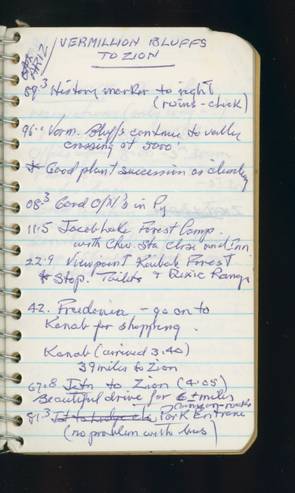 VERMILLION BLUFFS
TO ZION
89.3 History marker to right
(ruins - check)
96.0 Verm. Bluffs continue to valley
crossing at 5000'
* Good plant succession as climbing
08.3 Good in Pj
11.5 Jacob Lake Forest Camp.
with Chev. Sta. Close and Inn
22.9 Viewpoint Kaibab Forest
* Stop. Toilets & Range
42. Fredonia - go on to
Kanab for shopping.
Kanab (arrived 3:40)
39 miles to Zion
67.8 Jctn to Zion (4:05)
Beautiful drive for 6± miles
81.3 Park Entrance
(no problem with bus)